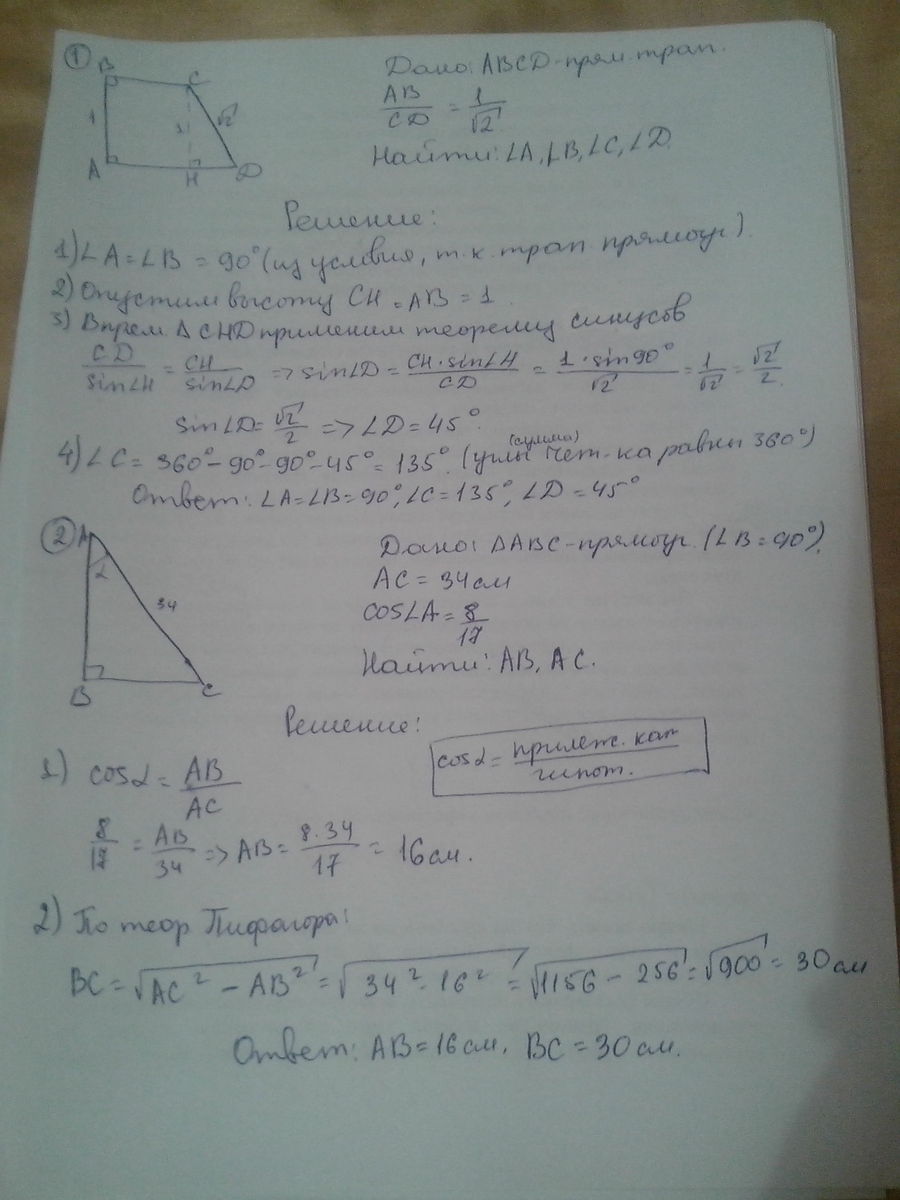 1
B C
1 1 √2
A H D
Дано: ABCD-прям. трап.
AB/CD = 1/√2
Найти: ∠A, ∠B, ∠C, ∠D.
Решение:
1) ∠A = ∠B = 90° (из условия, т.к. трап. прямоуг).
2) Опустим высоту CH = AB = 1.
3) В прям. Δ CHD применим теорему синусов
CD/sin∠H = CH/sin∠D => sin∠D = CH·sin∠H/CD = 1·sin90°/√2 = 1/√2 = √2/2.
sin∠D = √2/2 => ∠D = 45°.
4) ∠C = 360° - 90° - 90° - 45° = 135°. (углы (сумма) чет-ка равны 360°)
Ответ: ∠A = ∠B = 90°, ∠C = 135°, ∠D = 45°
2
A
α
34
B C
Дано: ΔABC-прямоуг. (∠B = 90°).
AC = 34 см
cos∠A = 8/17
Найти: AB, AC.
Решение:
1) cosα = AB/AC
cosα = прилеж. кат/гипот.
8/17 = AB/34 => AB = 8·34/17 = 16 см.
2) По теор Пифагора:
BC = √AC² - AB² = √34² - 16² = √1156 - 256 = √900 = 30 см
Ответ: AB = 16 см, BC = 30 см.